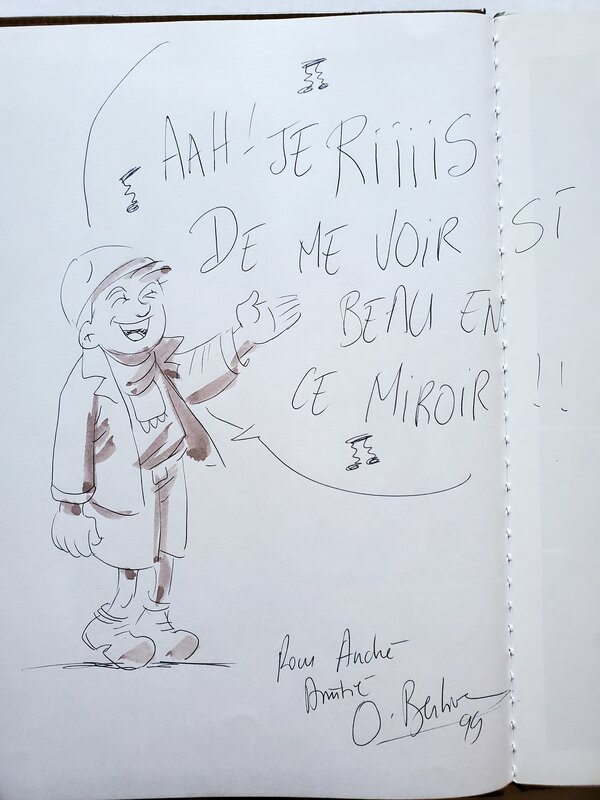 AAH! JE RiiiiS
DE ME VOiR Si
BEAU EN
CE MiROiR !!
Pour André
Amitié
O. Berlion
99